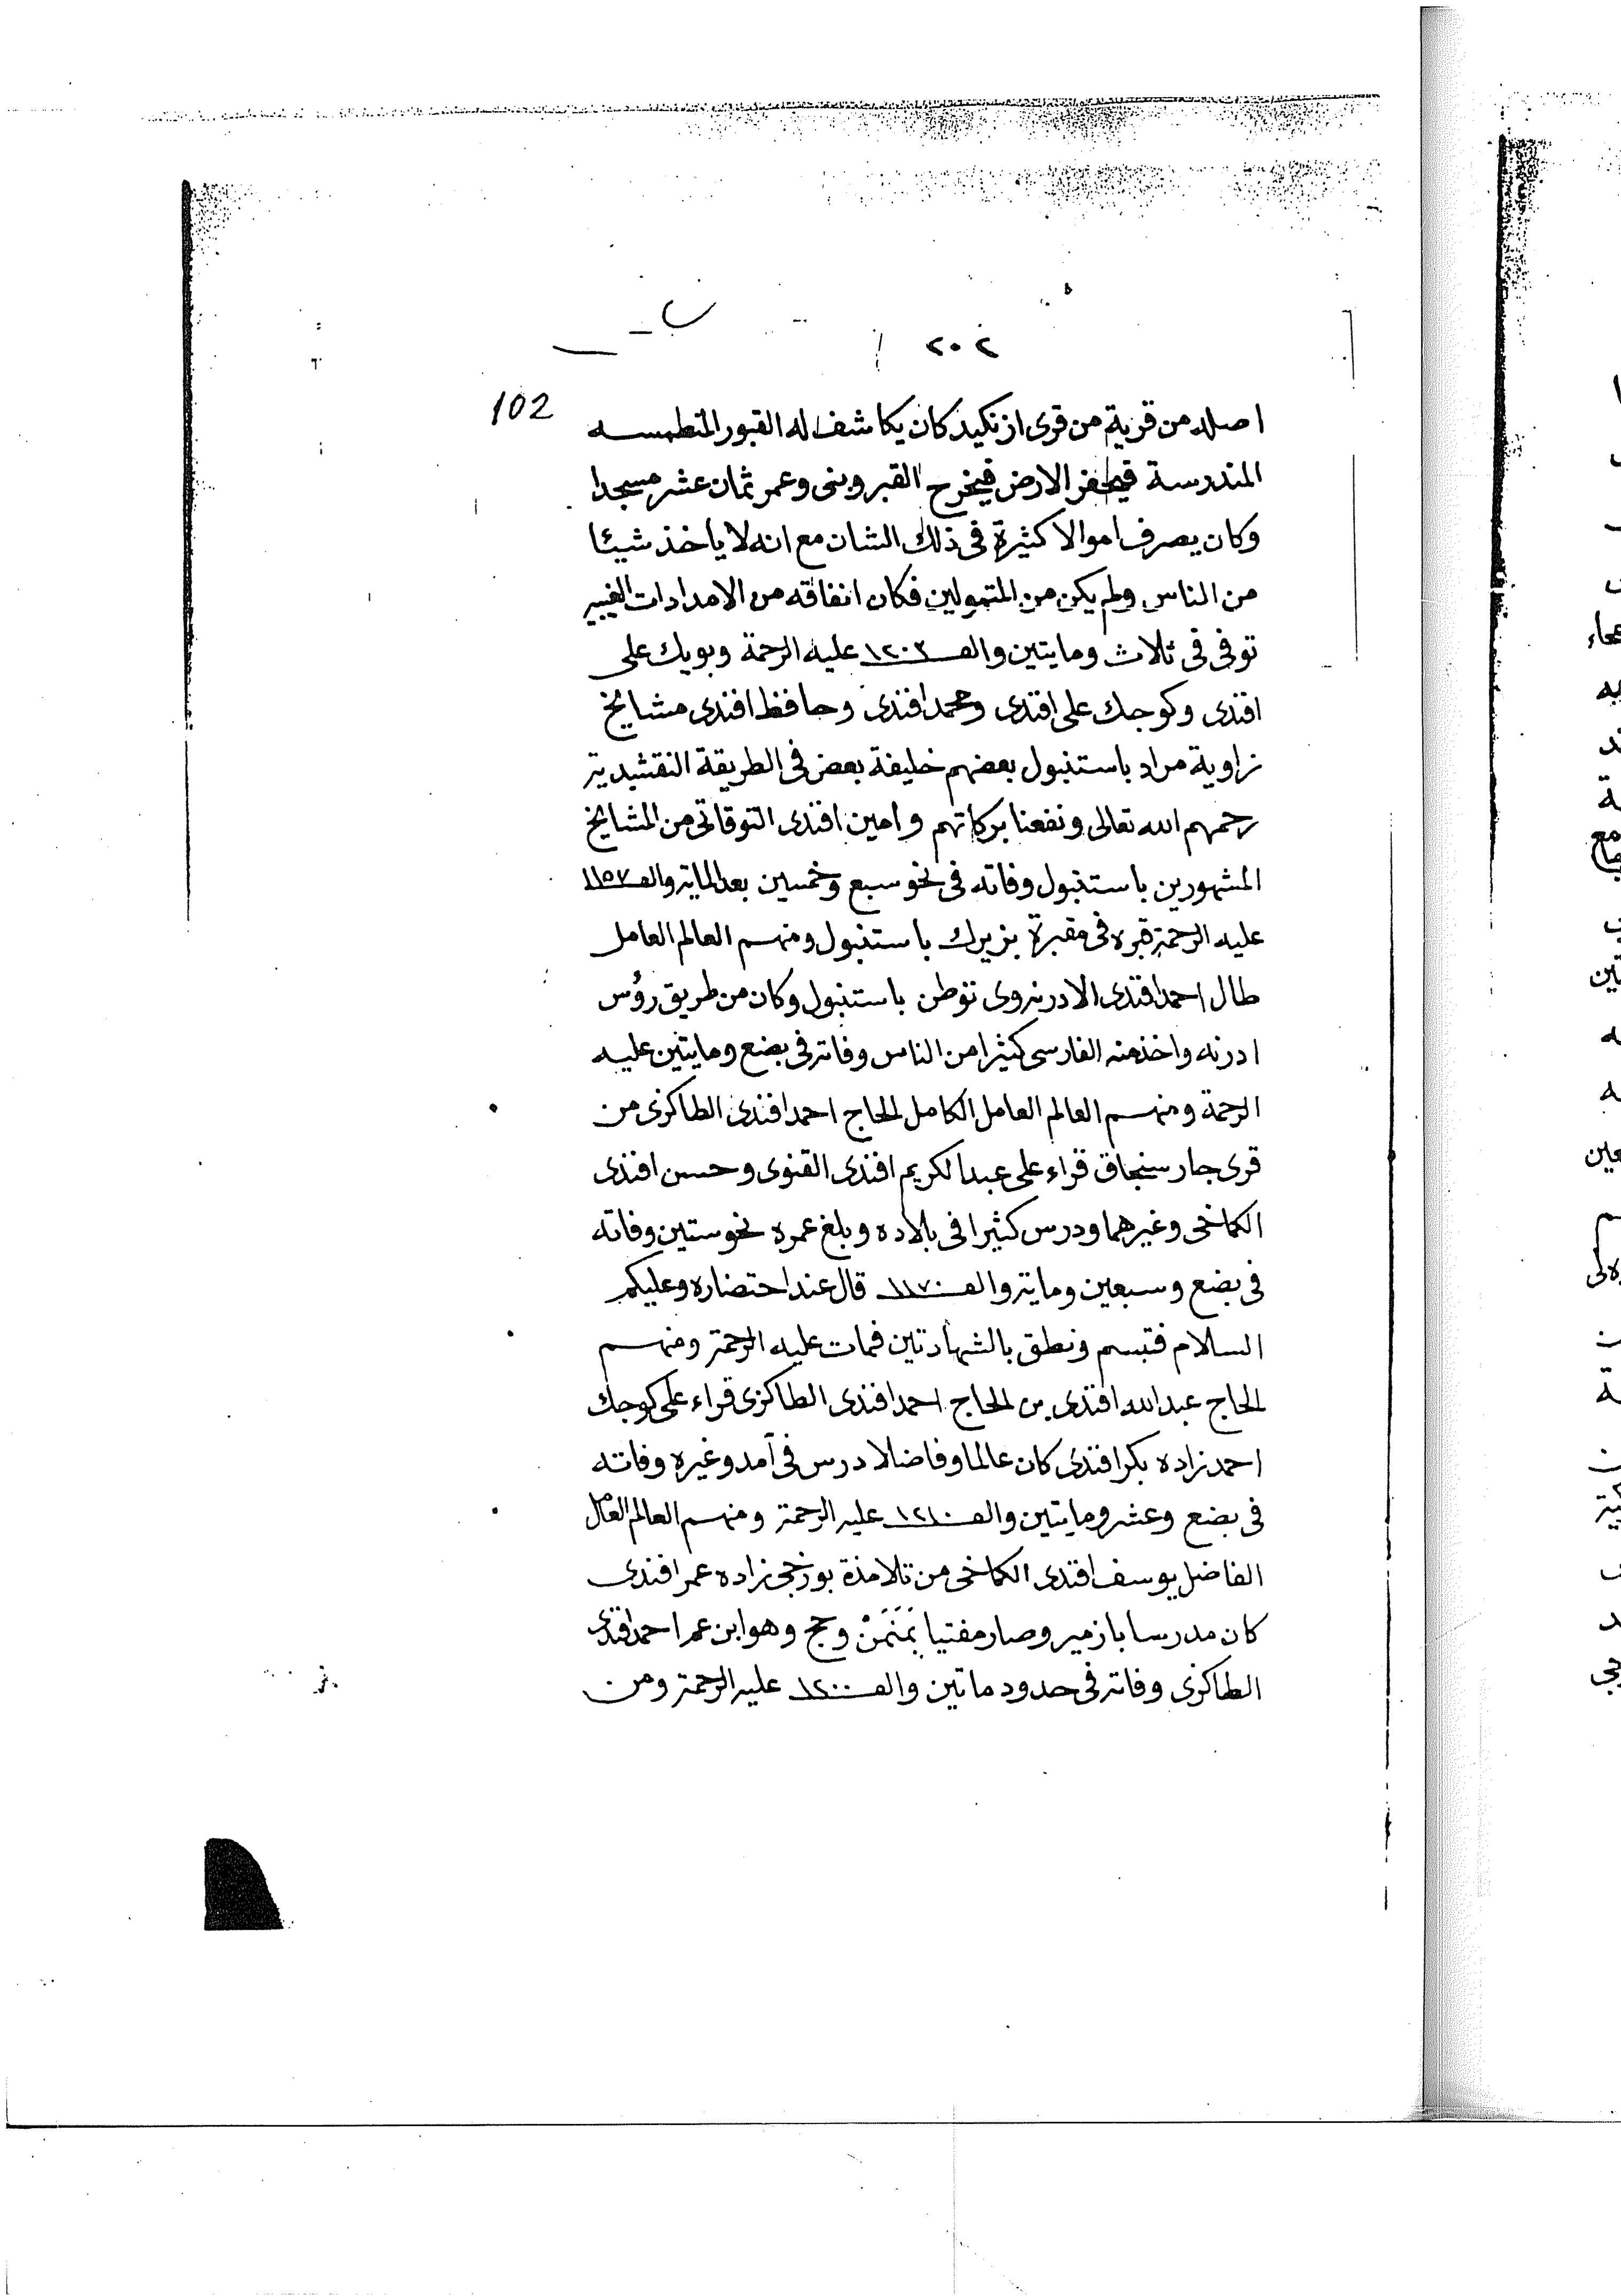 ٢٠٢
102
اصله من قرية من قرى ازنكيد كان يكاشف له القبور المتطمسه
المندرسة فيحفر الارض فيخرج القبر وبنى وعمر ثمان عشر مسجدا
وكان يصرف اموالا كثيرة فى ذلك الشان مع انه لا ياخذ شيئا
من الناس ولم يكن من المتمولين فكان انفاقه من الامدادات الغيبية
توفى فى ثلاث ومايتين والف ١٢٠٣ عليه الرحمة وبويك على
افندى وكوجك على افندى ومحمد افندى وحافظ افندى مشايخ
زاوية مراد باستنبول بعضهم خليفة بعض فى الطريقة النقشبدية
رحمهم الله تعالى ونفعنا ببركاتهم وامين افندى التوقاتى من المشايخ
المشهورين باستنبول وفاته فى نحو سبع وخمسين بعد الماية والف ١١٥٧
عليه الرحمة قبره فى مقبرة بزيرك باستنبول ومنهم العالم العامل
طال احمد افندى الادرنروى توطن باستنبول وكان من طريق رؤس
ادرنه واخذ منه الفارسى كثيرا من الناس وفاته فى بضع ومايتين عليه
الرحمة ومنهم العالم العامل الكامل الحاج احمد افندى الطاكزى من
قرى جار سنجاق قراء على عبد الكريم افندى القنوى وحسن افندى
الكماخى وغيرهما ودرس كثيرا فى بلاده وبلغ عمره نحو ستين وفاته
فى بضع وسبعين وماية والف ١١٧٠ قال عند احتضاره وعليكم
السلام فتبسم ونطق بالشهادتين فمات عليه الرحمة ومنهم
الحاج عبد الله افندى بن الحاج احمد افندى الطاكزى قراء على كوجك
احمد زاده بكر افندى كان عالما وفاضلا درس فى آمد وغيره وفاته
فى بضع وعشر ومايتين والف ١٢١٠ عليه الرحمة ومنهم العالم العامل
الفاضل يوسف افندى الكماخى من تلامذة بوزخجى زاده عمر افندى
كان مدرسا بازمير وصار مفتيا بمَنَمَنْ وحج وهو ابن عم احمد افندى
الطاكزى وفاته فى حدود ماتين والف ١٢٠٠ عليه الرحمة ومن